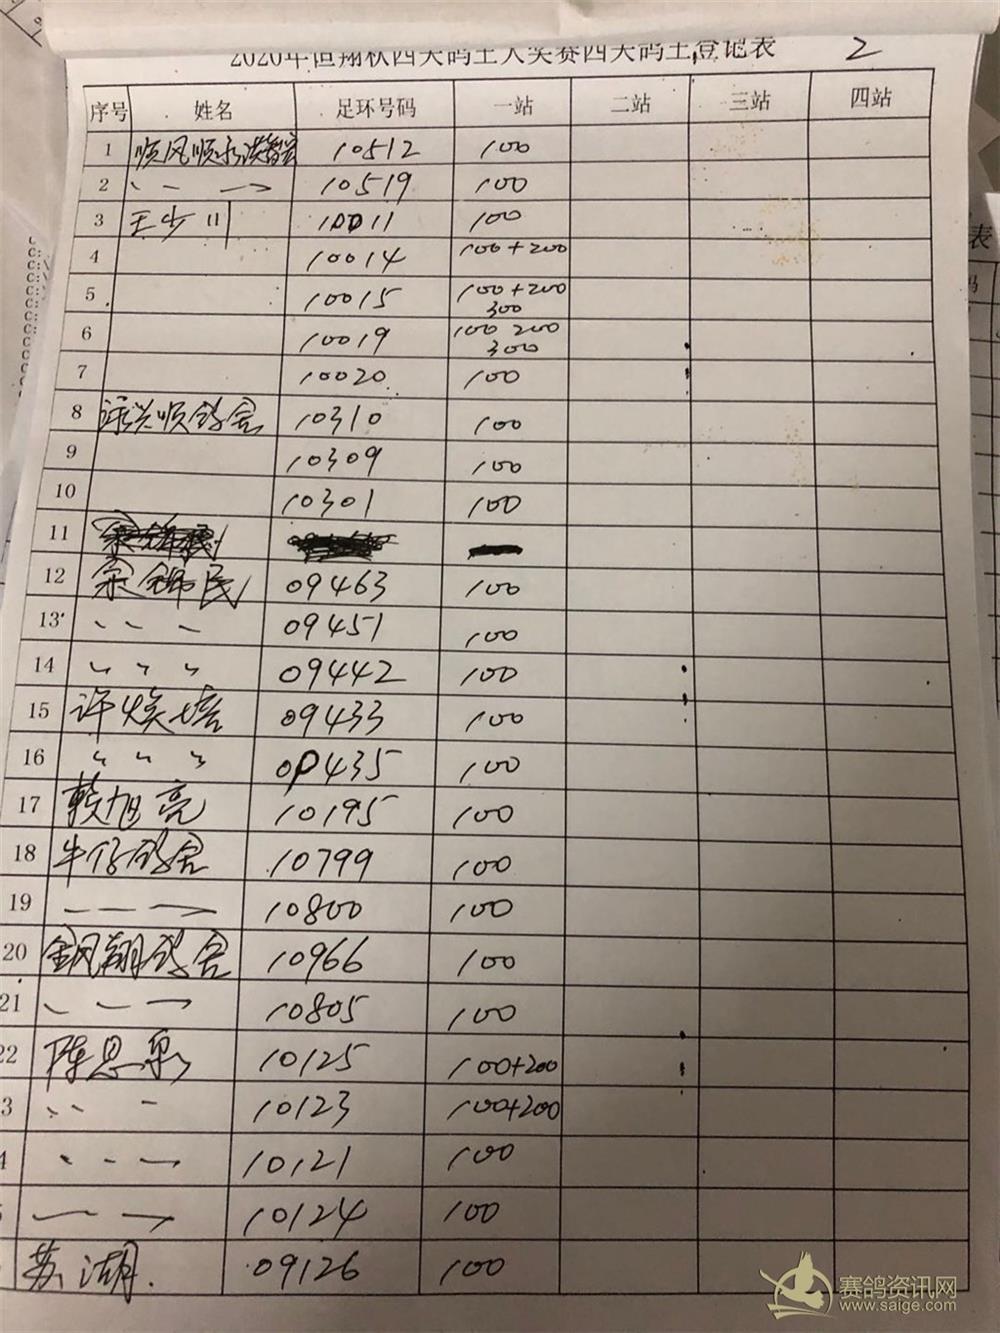 2020年恒翔秋四关鸽王大奖赛四关鸽王登记表 2
序号 姓名 足环号码 一站 二站 三站 四站
1 10512 100
2 〃 〃 10519 100
3 王少川 10011 100
4 10014 100+200
5 10015 100+200
300
6 10019 100 200
300
7 10020 100
8 鸽舍 10310 100
9 10309 100
10 10301 100
11
12 余锦民 09463 100
13 〃 〃 〃 09451 100
14 〃 〃 〃 09442 100
15 许焕培 09433 100
16 〃 〃 〃 09435 100
17 赖旭亮 10195 100
18 牛仔鸽舍 10799 100
19 10800 100
20 翔鸽舍 10966 100
21 10805 100
22 陈思 10125 100+200
3 〃 10123 100+200
4 10121 100
10124 100
苏湖 09126 100
表
赛鸽资讯网
www.saige.com